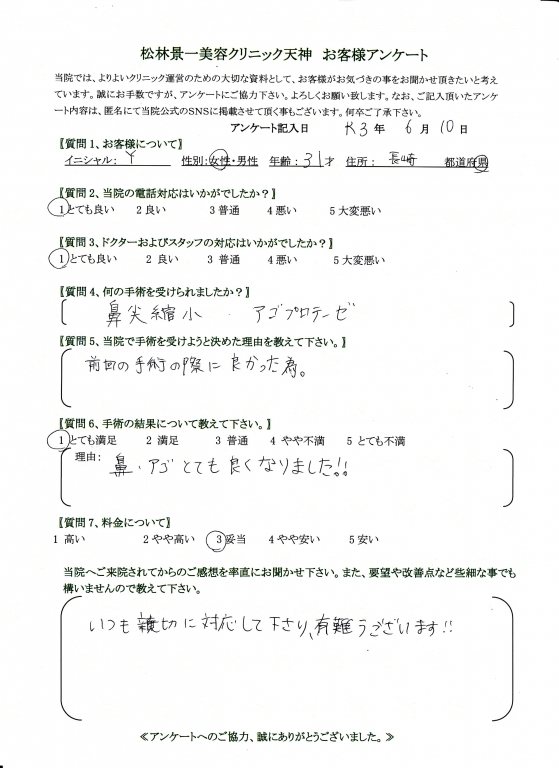 松林景一美容クリニック天神　お客様アンケート
当院では、よりよいクリニック運営のための大切な資料として、お客様がお気づきの事をお聞かせ頂きたいと考え
ています。誠にお手数ですが、アンケートにご協力下さい。よろしくお願い致します。なお、ご記入頂いたアンケ
ート内容は、匿名にて当院公式のSNSに掲載させて頂く事もございます。何卒ご了承下さい。
アンケート記入日　R3年　6月10日
【質問1、お客様について】
イニシャル：Y　性別：女性・男性　年齢：31才　住所：長崎　都道府県
【質問2、当院の電話対応はいかがでしたか？】
1とても良い　2 良い　3 普通　4 悪い　5 大変悪い
【質問3、ドクターおよびスタッフの対応はいかがでしたか？】
1とても良い　2 良い　3 普通　4 悪い　5 大変悪い
【質問4、何の手術を受けられましたか？】
鼻尖縮小　・　アゴプロテーゼ
【質問5、当院で手術を受けようと決めた理由を教えて下さい。】
前回の手術の際に良かった為。
【質問6、手術の結果について教えて下さい。】
1とても満足　2 満足　3 普通　4 やや不満　5 とても不満
理由：
鼻・アゴとても良くなりました!!
【質問7、料金について】
1 高い　2 やや高い　3 妥当　4 やや安い　5 安い
当院へご来院されてからのご感想を率直にお聞かせ下さい。また、要望や改善点など些細な事でも
構いませんので教えて下さい。
いつも親切に対応して下さり、有難うございます!!
≪アンケートへのご協力、誠にありがとうございました。≫